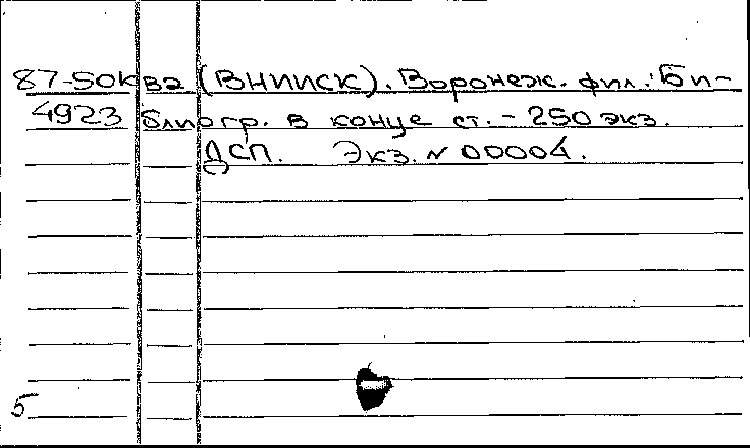 87-50КВ2 (ВНИИСК). Воронеж. фил.: Би-
4923 блиогр. в конце ст. - 250 экз.
ДСП. Экз. N 00004.
5